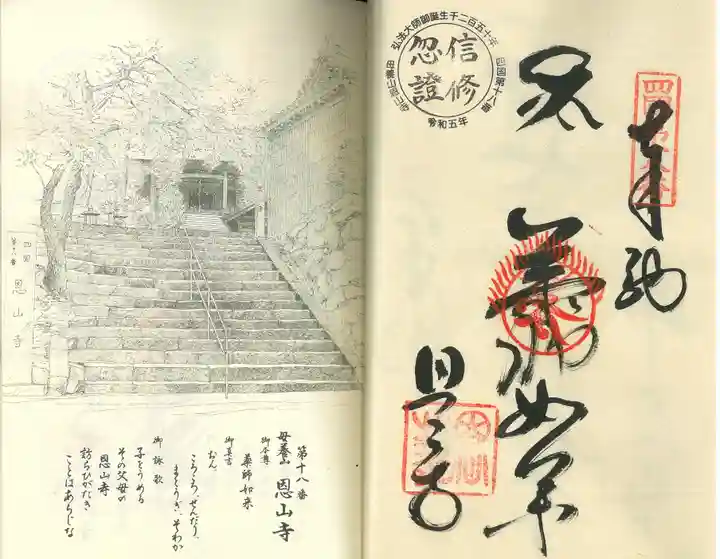 四国
第十八番
恩山寺
第十八番
母養山 恩山寺
御本尊
薬師如来
御真言
おん
ころころ せんだり
まとうぎ そわか
御詠歌
子をうめる
その父母の
恩山寺
訪らひがたき
ことはあらじな
弘法大師御誕生千二百五十年
四國第十八番
令和五年
信修
忽證
奉納
薬師如来
恩山寺